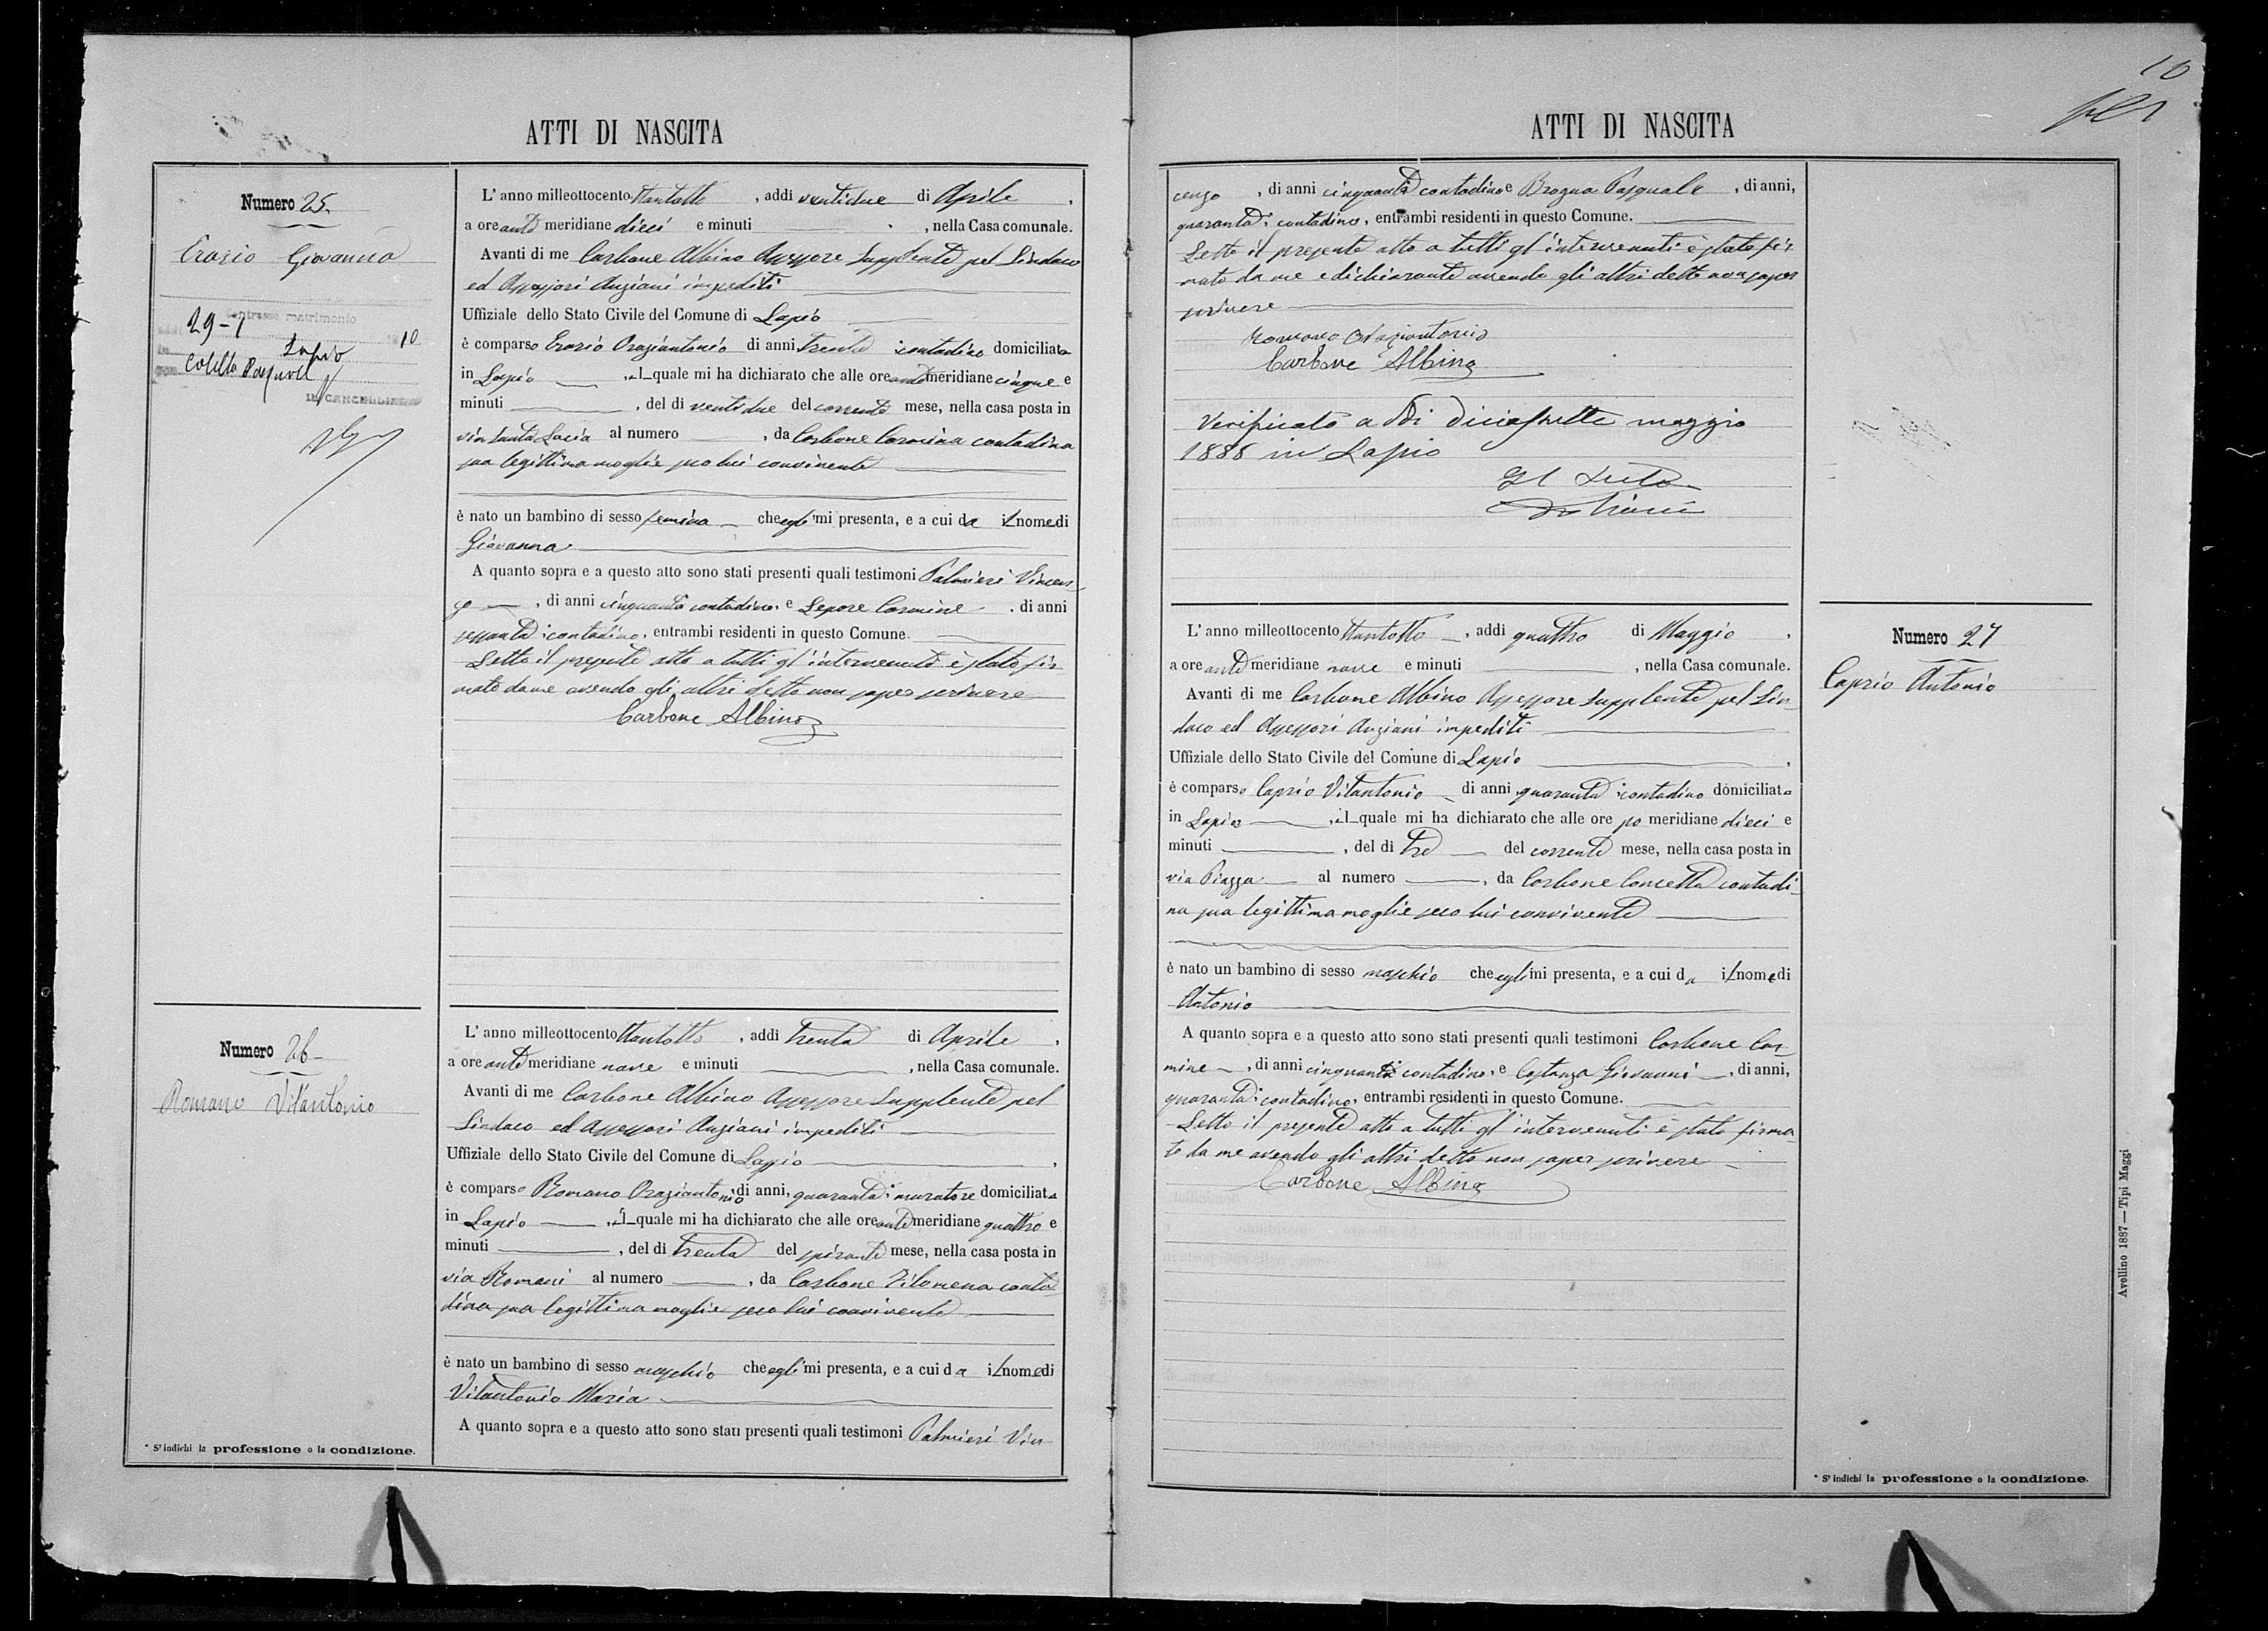 ATTI DI NASCITA
Numero 25.
Erasio Giovanna
contrasse matrimonio
29-1
10
Lapio
IL CANCELLIERE
L'anno milleottocento ttantotto, addì ventidue di Aprile,
a ore ante meridiane dieci e minuti , nella Casa comunale.
Avanti di me Carbone Albino Assessore Supplente pel Sindaco
ed Assessori Anziani impediti
Uffiziale dello Stato Civile del Comune di Lapio
è comparso Erasio Oraziantonio di anni trenta contadino domiciliato
in Lapio , il quale mi ha dichiarato che alle ore ante meridiane cinque e
minuti , del dì venti due del corrente mese, nella casa posta in
via Santa Lucia al numero , da Carbone Carmina contadina
sua legittima moglie seco lui convivente
è nato un bambino di sesso femina che egli mi presenta, e a cui da il nome di
Giovanna
A quanto sopra e a questo atto sono stati presenti quali testimoni Palmieri Vincen-
zo , di anni cinquanta contadino, e Lepore Carmine , di anni
sessanta, contadino, entrambi residenti in questo Comune.
Letto il presente atto a tutti gl'intervenuti è stato fir
mato da me avendo gli altri detto non saper scrivere
Carbone Albino
Numero 26
Romano Vitantonio
L'anno milleottocento ttantotto, addì trenta di Aprile,
a ore ante meridiane nove e minuti , nella Casa comunale.
Avanti di me Carbone Albino Assessore Supplente pel
Sindaco ed Assessori Anziani impediti
Uffiziale dello Stato Civile del Comune di Lapio ,
è comparso Romano Oraziantonio di anni, quaranta, muratore domiciliato
in Lapio , il quale mi ha dichiarato che alle ore ante meridiane quattro e
minuti , del dì trenta del spirante mese, nella casa posta in
via Romani al numero , da Carbone Filomena conta
dina sua legittima moglie seco lui convivente
è nato un bambino di sesso maschio che egli mi presenta, e a cui da il nome di
Vitantonio Maria
A quanto sopra e a questo atto sono stati presenti quali testimoni Palmieri Vin
* Si indichi la professione o la condizione.
10
ATTI DI NASCITA
cenzo , di anni cinquanta contadino e Brogna Pasquale , di anni,
quaranta, contadino, entrambi residenti in questo Comune.
Letto il presente atto a tutti gl'intervenuti è stato fir
mato da me e dichiarante avendo gli altri detto non saper
scrivere
Romano Oraziantonio
Carbone Albino
Verificato a dì diciassette maggio
1888 in Lapio
Numero 27
Caprio Antonio
L'anno milleottocento ttantotto , addì quattro di Maggio ,
a ore ante meridiane nove e minuti , nella Casa comunale.
Avanti di me Carbone Albino Assessore Supplente pel Sin
daco ed Assessori Anziani impediti
Uffiziale dello Stato Civile del Comune di Lapio ,
è comparso Caprio Vitantonio di anni quaranta contadino domiciliato
in Lapio , il quale mi ha dichiarato che alle ore po meridiane dieci e
minuti , del dì tre del corrente mese, nella casa posta in
via Piazza al numero , da Carbone Concetta contadi
na sua legittima moglie seco lui convivente
è nato un bambino di sesso maschio che egli mi presenta, e a cui da il nome di
Antonio
A quanto sopra e a questo atto sono stati presenti quali testimoni Carbone Car
mine , di anni cinquanta contadino, e Costanza Giovanni , di anni,
quaranta, contadino, entrambi residenti in questo Comune.
Letto il presente atto a tutti gl'intervenuti è stato firma
to da me avendo gli altri detto non saper scrivere
Carbone Albino
* Si indichi la professione o la condizione.
Avellino 1887 — Tipi Maggi